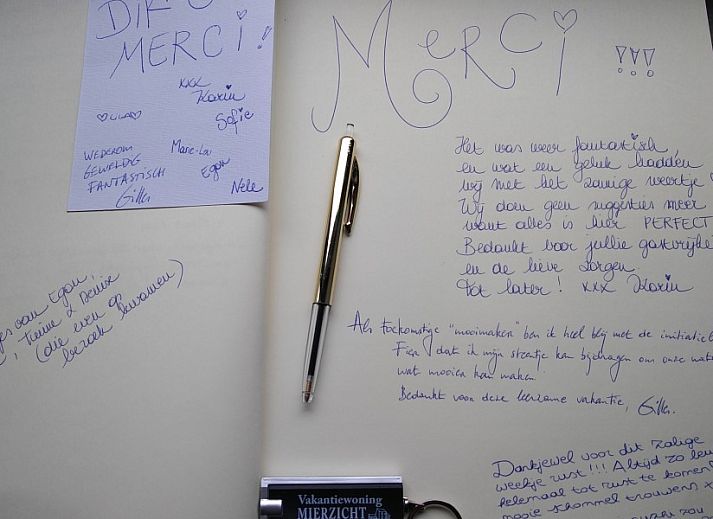 DIK
MERCi!
xxx
Karin
Sofie
WEDEROM
GEWELDIG
FANTASTISCH
Gilla
Marie-Lou
Egon
Nele
van Egon,
Turine & Denise
(die even op
bezoek kwamen)
MeRCi !!!
Het was weer fantastisch,
en wat een geluk hadden
wij met het zonnige weertje
Wij doen geen suggesties meer
want alles is hier PERFECT
Bedankt voor jullie
en de lieve zorgen.
Tot later! xxx Karin
Als toekomstige "mooimaker" ben ik heel blij met de
Fier dat ik mijn steentje kan bijdragen om onze
wat mooier kan maken.
Bedankt voor deze leerzame vakantie, Gilla.
Dankjewel voor dit zalige
weekje rust!!! Altijd zo
helemaal tot rust te komen
mooie schommel trouwens
Vakantiewoning
MIERZICHT